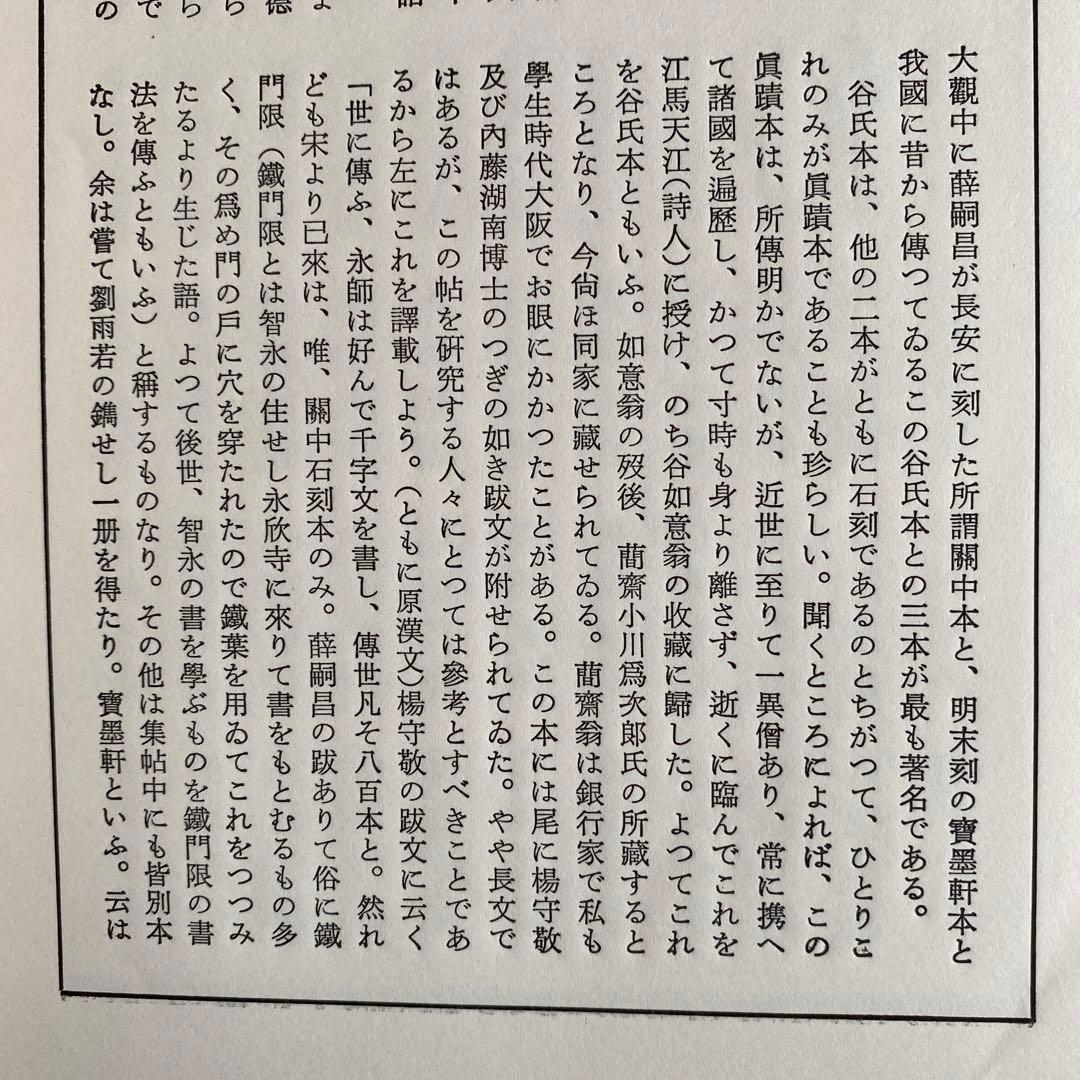 大觀中に薛嗣昌が長安に刻した所謂關中本と、明末刻の寶墨軒本と
我國に昔から傳つてゐるこの谷氏本との三本が最も著名である。
谷氏本は、他の二本がともに石刻であるのとちがつて、ひとりこ
れのみが眞蹟本であることも珍らしい。聞くところによれば、この
眞蹟本は、所傳明かでないが、近世に至りて一異僧あり、常に携へ
て諸國を遍歷し、かつて寸時も身より離さず、逝くに臨んでこれを
江馬天江(詩人)に授け、のち谷如意翁の收藏に歸した。よつてこれ
を谷氏本ともいふ。如意翁の歿後、蘭齋小川爲次郎氏の所藏すると
ころとなり、今尙ほ同家に藏せられてゐる。蘭齋翁は銀行家で私も
學生時代大阪でお眼にかかつたことがある。この本には尾に楊守敬
及び內藤湖南博士のつぎの如き跋文が附せられてゐた。やや長文で
はあるが、この帖を硏究する人々にとつては參考とすべきことであ
るから左にこれを譯載しよう。(ともに原漢文)楊守敬の跋文に云く
「世に傳ふ、永師は好んで千字文を書し、傳世凡そ八百本と。然れ
ども宋より已來は、唯、關中石刻本のみ。薛嗣昌の跋ありて俗に鐵
門限(鐵門限とは智永の住せし永欣寺に來りて書をもとむるもの多
く、その爲め門の戶に穴を穿たれたので鐵葉を用ゐてこれをつつみ
たるより生じた語。よつて後世、智永の書を學ぶものを鐵門限の書
法を傳ふともいふ)と稱するものなり。その他は集帖中にも皆別本
なし。余は嘗て劉雨若の鐫せし一册を得たり。寶墨軒といふ。云は